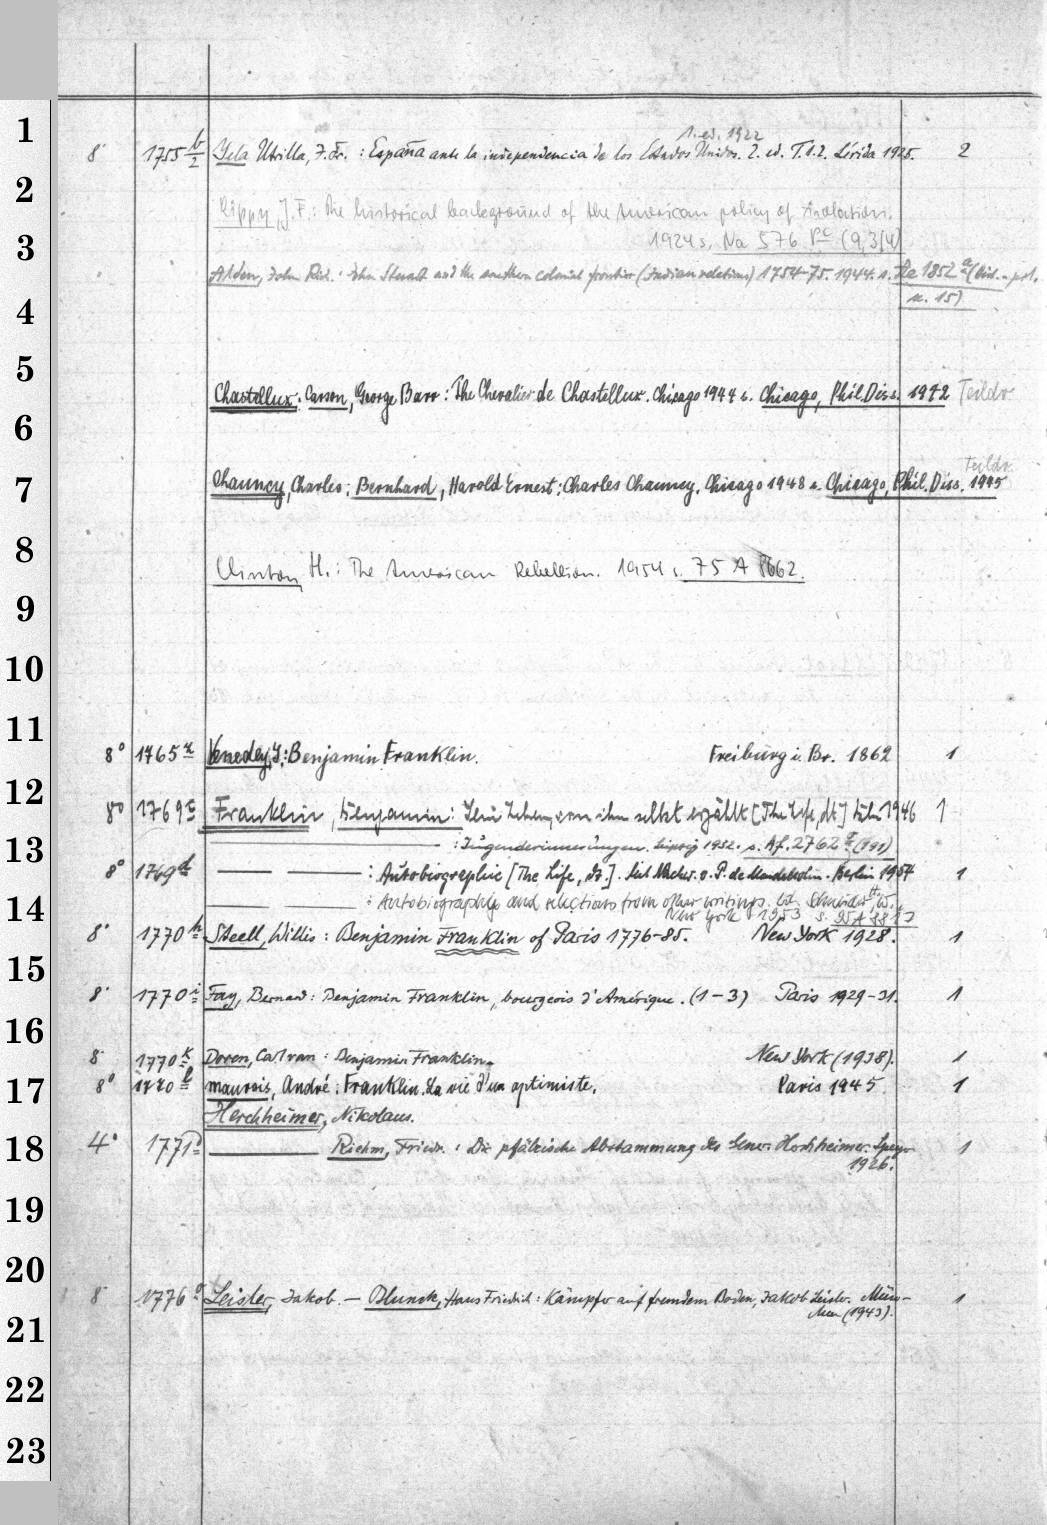 1
1. ed. 1922
8° 1755 b/2 Yela Utrilla, J. Fr. : España ante la independencia de los Estados Unidos. 2. ed. T. 1.2. Lérida 1925. 2
2
Rippy, J. F.: The historical background of the American policy of isolation.
3
1924 s. Na 576 (9,3/4)
Alden, John Rich.: John Stuart and the southern colonial frontier (Indian relations) 1754-75. 1944. s. Re 1852
4
n. 15)
5
Chastellux: Carson, George Barr: The Chevalier de Chastellux. Chicago 1944 s. Chicago, Phil. Diss. 1942 Teildr.
6
Teildr.
7
Chauncy, Charles; Bernhard, Harold Ernest: Charles Chauncy. Chicago 1948 s. Chicago, Phil. Diss. 1945
8
Clinton, H.: The American Rebellion. 1954 s. 75 A 8662.
9
10
11
8° 1765 x Venedey, J.: Benjamin Franklin. Freiburg i. Br. 1862 1
12
8° 1769 c Franklin, Benjamin: Sein Leben, von ihm selbst erzählt [The Life, dt.] Köln 1946 1
13
: Jugenderinnerungen. Leipzig 1952. s. Af. 2762
8° 1769 d : Autobiographie [The Life, dt.]. Mit Nachw. v. P. de Mendelssohn. Berlin 1954 1
14
: Autobiography and selections from other writings. Ed. Schneider, H. W.
New York 1953 s.
8° 1770 h Steell, Willis: Benjamin Franklin of Paris 1776-85. New York 1928. 1
15
8° 1770 i Fay, Bernard: Benjamin Franklin, bourgeois d'Amérique. (1-3) Paris 1929-31. 1
16
8° 1770 k Doren, Carl van: Benjamin Franklin. New York (1938). 1
17
8° 1770 l Maurois, André: Franklin. La vie d'un optimiste. Paris 1945. 1
Herchheimer, Nikolaus.
18
4° 1771 Riehm, Friedr. : Die pfälzische Abstammung des Gener. Herchheimer. Speyer
1926. 1
19
20
8° 1776 Leisler, Jakob. — Blunck, Hans Friedrich: Kämpfer auf fremdem Boden, Jakob Leisler. Mün-
chen (1943). 1
21
22
23